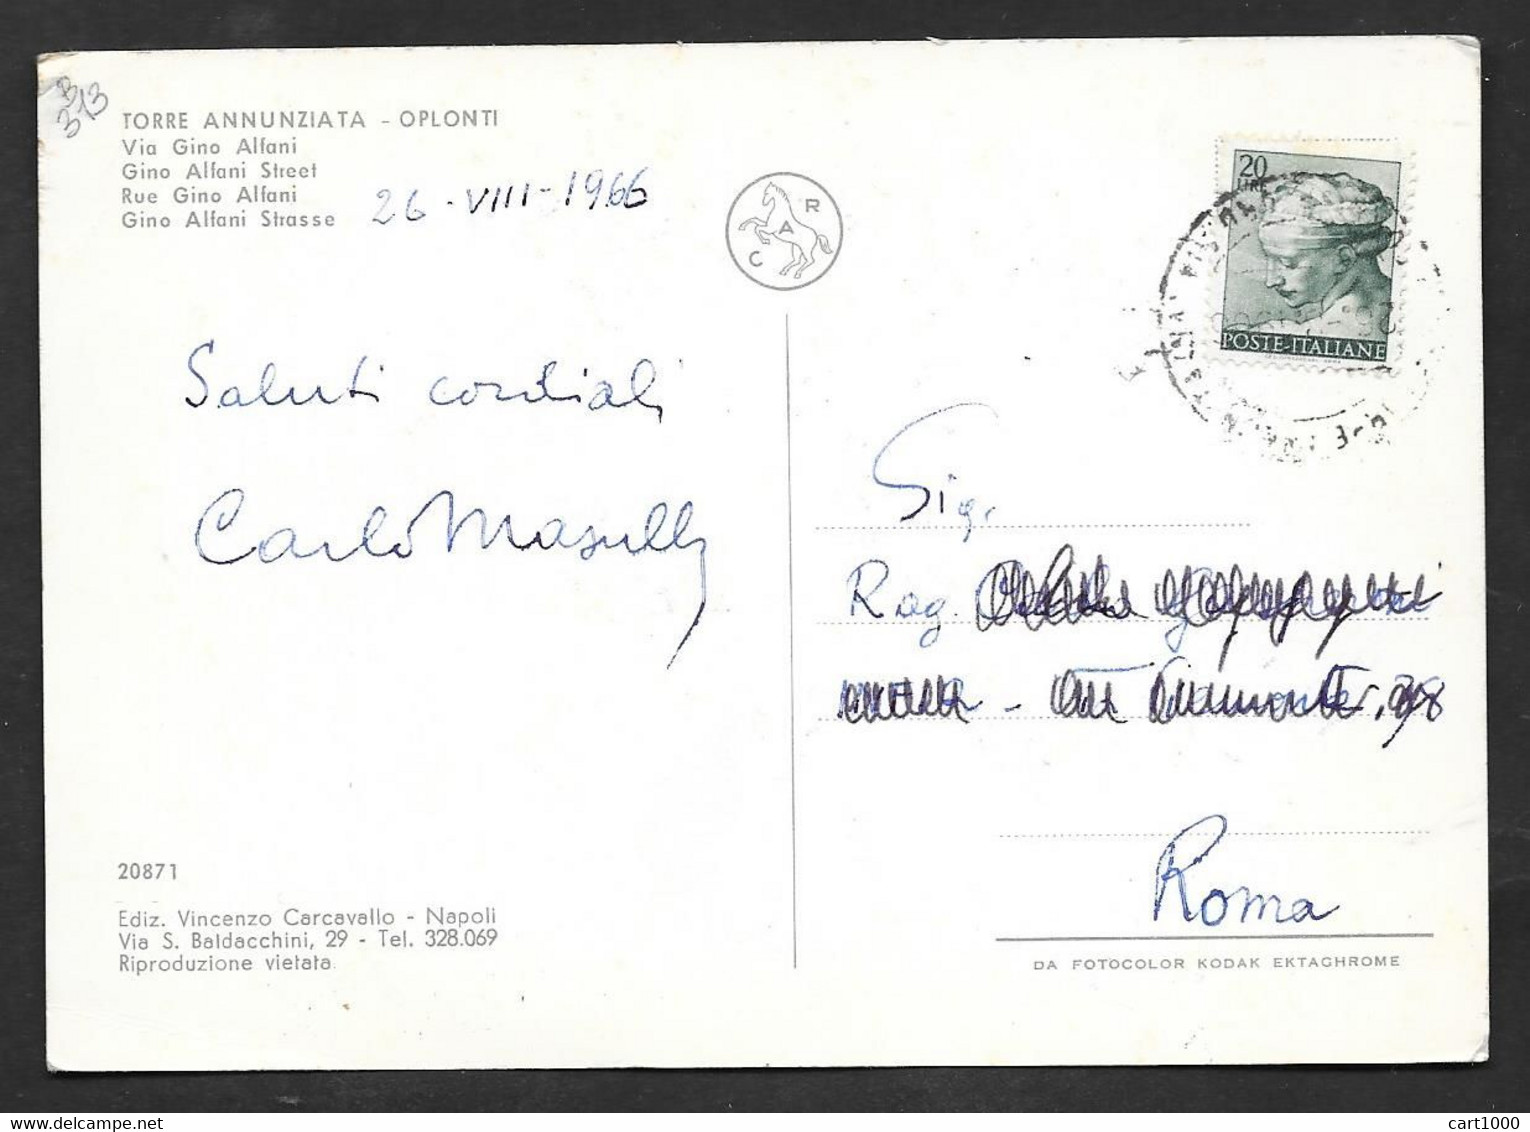 B
313
TORRE ANNUNZIATA - OPLONTI
Via Gino Alfani
Gino Alfani Street
Rue Gino Alfani
Gino Alfani Strasse
26 - VIII - 1966
C A R
20
LIRE
POSTE ITALIANE
Saluti cordiali
Carlo Masully
Sig.
Rag.
Roma
20871
Ediz. Vincenzo Carcavallo - Napoli
Via S. Baldacchini, 29 - Tel. 328.069
Riproduzione vietata
DA FOTOCOLOR KODAK EKTACHROME
delcampe.net
cart1000